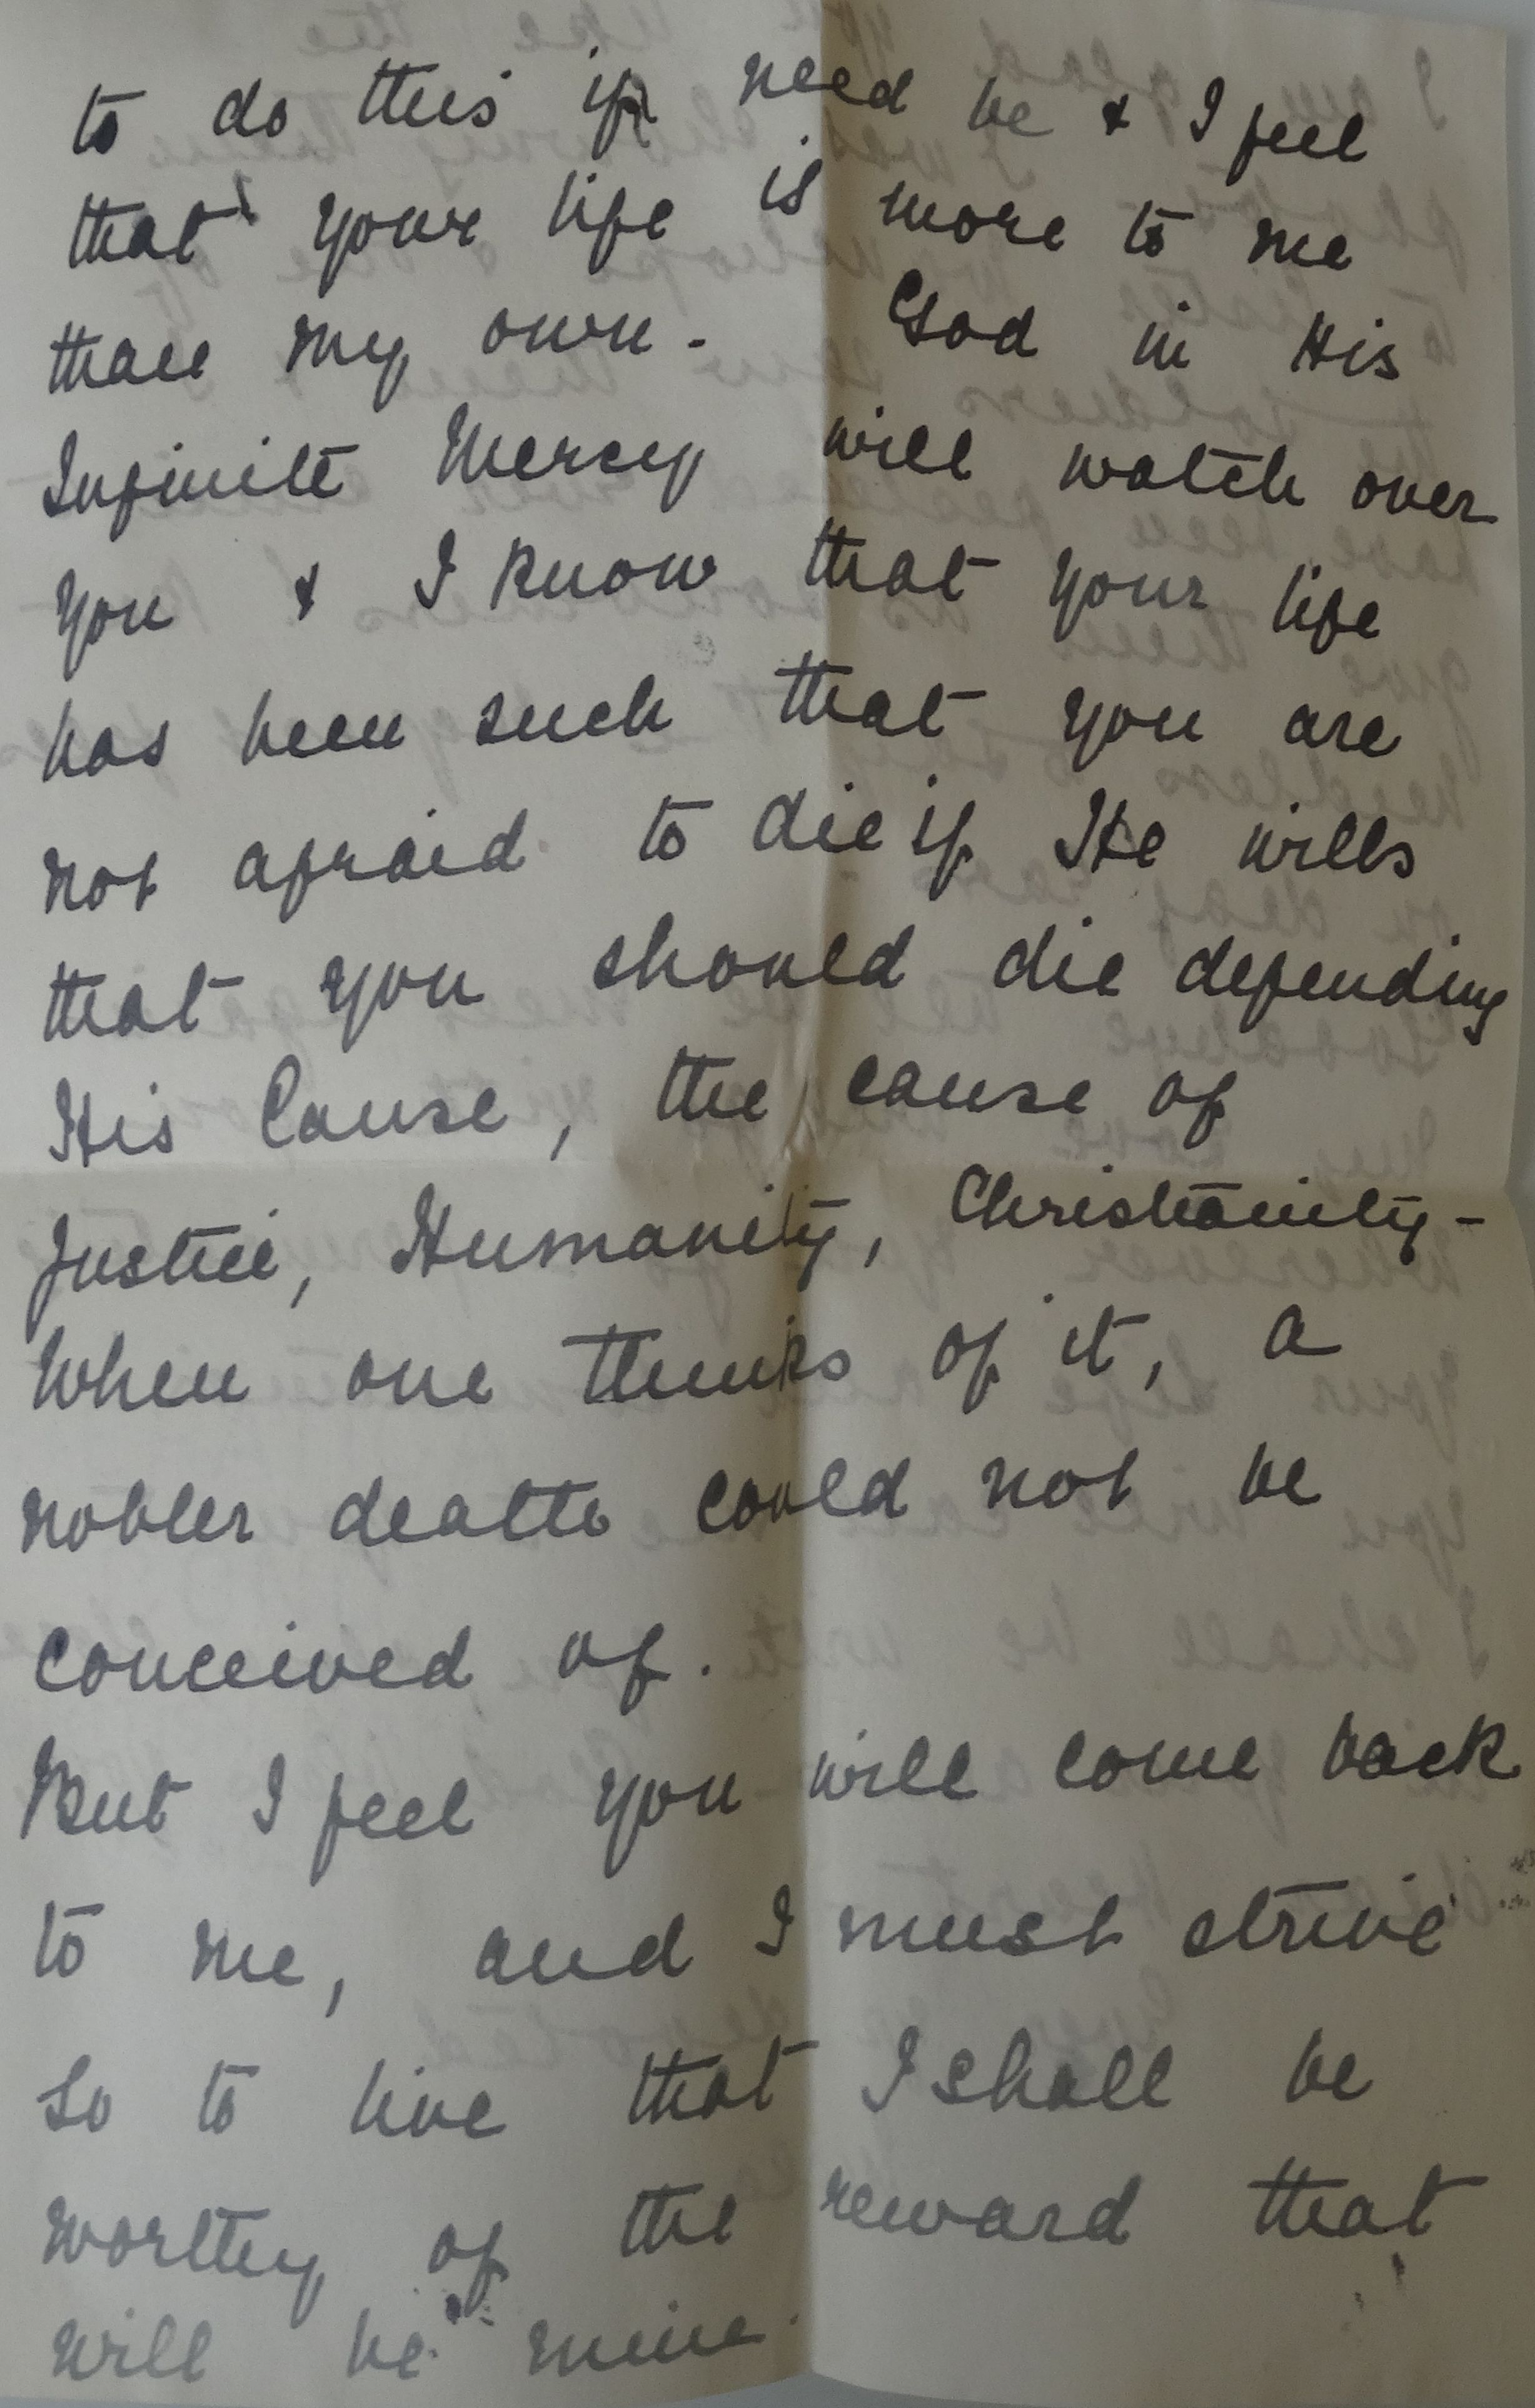 to do this if need be & I feel
that your life is more to me
than my own - God in His
Infinite Mercy will watch over
you & I know that your life
has been such that you are
not afraid to die if He wills
that you should die defending
His Cause, the cause of
Justice, Humanity, Christianity -
When one thinks of it, a
nobler death could not be
conceived of.
But I feel you will come back
to me, and I must strive
so to live that I shall be
worthy of the reward that
will be mine.